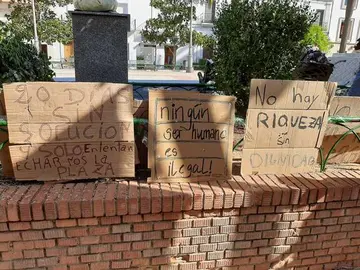 20 DIAS
SIN
SOLUCIÓN
SOLO ENTENTAN
ECHARNOS LA
PLAZA
Ningún
ser humano
es
ilegal!
No hay
RIQUEZA
sin
DIGNIDAD